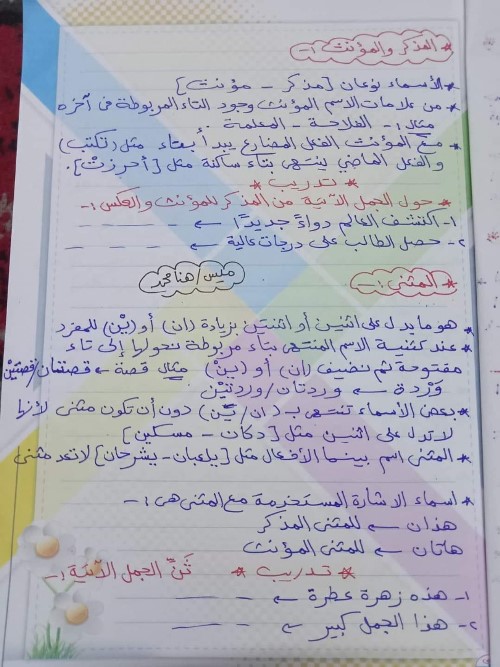 * المذكر والمؤنث :-
* الأسماء نوعان [مذكر - مؤنث]
* من علامات الاسم المؤنث وجود التاء المربوطة فى آخره
مثال :- الفلاحة - المعلمة .
* مع المؤنث الفعل المضارع يبدأ بتاء مثل (تكتب)
والفعل الماضي ينتهى بتاء ساكنة مثل [أحرزتْ].
* تدريب *
حول الجمل الآتية من المذكر للمؤنث والعكس :-
١- اكتشف العالم دواءً جديدًا ←
٢- حصل الطالب على درجات عالية ←
* المثنى :-
ميس/هنا محمد
* هو ما يدل على اثنين أو اثنتين بزيادة (ان) أو (يْن) للمفرد
* عند تثنية الاسم المنتهى بتاء مربوطة نحولها إلى تاء
مفتوحة ثم نضيف (ان) أو (يْن) مثال قصة ← قصتان/قصتيْن
وَرْدة ← وردتان/وردتيْن
* بعض الأسماء تنتهى بـ (ان/يْن) دون أن تكون مثنى لأنها
لا تدل على اثنين مثل [دكان - مسكين]
* المثنى اسم بينما الأفعال مثل [يلعبان - يشرحان] لا تعد مثنى
* اسماء الاشارة المستخدمة مع المثنى هى :-
هذان ← للمثنى المذكر
هاتان ← للمثنى المؤنث
* تدريب * ثَنِّ الجمل الآتية :-
١- هذه زهرة عطرة ←
٢- هذا الجمل كبير ←